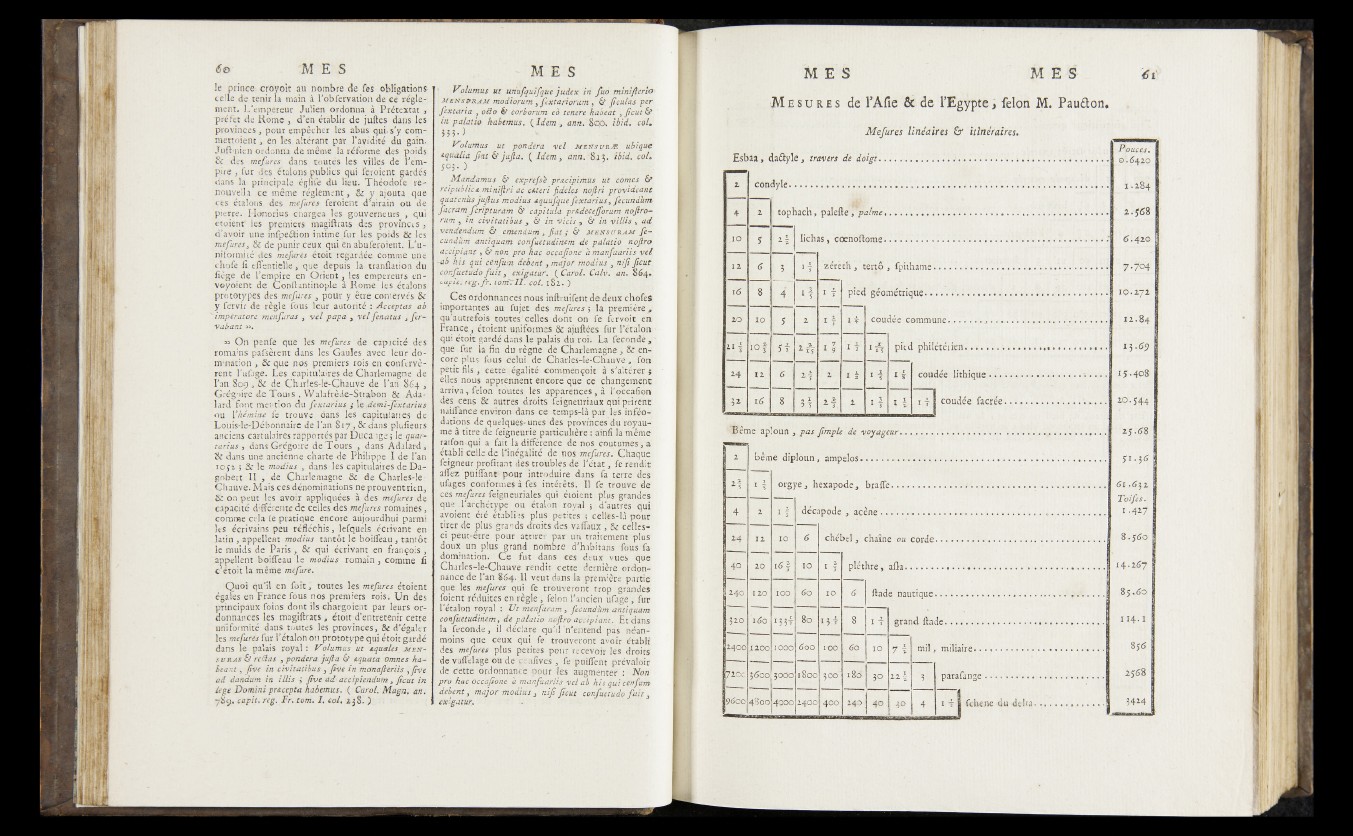 60 MES MES
le prince croyoit au nombre de ses obligations
celle de tenir la main à l'observation de ce régle-
ment. L'empereur Julien ordonna à Prétextat,
préfet de Rome, d'en établir de justes dans les
provinces, pour empêcher les abus qui s'y com-
mettoient, en les altérant par l'avidité du gain.
Justinien ordonna de même la réforme des poids
& des mesures dans toutes les villes de l'em-
pire, sur des étalons publics qui seroient gardés
dans la principale église du lieu. Théodose re-
nouvella ce même réglement, & y ajouta que
ces étalons des mesures seroient d'airain ou de
pierre. Honorius chargea les gouverneurs, qui
étoient les premiers magistrats des provinces,
d'avoir une inspection intime sur les poids & les
mesures, & de punir ceux qui en abuseroient. L'u-
niformité des mesures étoit regardée comme une
chose si essentielle, que depuis la translation du
siége de l'empire en Orient, les empereurs en-
voyoient de Constantinople à Rome les étalons
prototypes des mesures, pour y être conservés &
y servir de règle sous leur autorité : Acceptas ab
imperatore mensuras, vel papa, vel senatus, ser-
vabant ».
» On pense que les mesures de capacité des
romains passèrent dans les Gaules avec leur do-
mination, & que nos premiers rois en conservè-
rent l'usage. Les capitulaires de Charlemagne de
l'an 809, & de Charles-le-Chauve de l'an 864,
Grégoire de Tours, Walafrède-Strabon & Ada-
lard font mention du sextarius ; le demi-sextarius
ou l'hémine se trouve dans les capitulaires de
Louis-le-Débonnaire de l'an 817, & dans plusieurs
anciens cartulaires rapportés par Ducange ; le quar-
tarius, dans Grégoire de Tours, dans Adalard,
& dans une ancienne charte de Philippe I de l'an
1052 ; & le modius, dans les capitulaires de Da-
gobert II, de Charlemagne & de Charles-le-
Chauve. Mais ces dénominations ne prouvent rien,
& on peut les avoir appliquées à des mesures de
capacité différente de celles des mesures romaines,
comme cela se pratique encore aujourdhui parmi
les écrivains peu réfléchis, lesquels écrivant en
latin, appellent modius tantôt le boisseau, tantôt
le muids de Paris, & qui écrivant en françois,
appellent boisseau le modius romain, comme si
c'étoit la même mesure.
Quoi qu'il en soit, toutes les mesures étoient
égales en France sous nos premiers rois. Un des
principaux soins dont ils chargeoient par leurs or-
donnances les magistrats, étoit d'entretenir cette
uniformité dans toutes les provinces, & d'égaler
les mesures sur l'étalon ou prototype qui étoit gardé
dans le palais royal : Volumus ut æquales MEN-
SURAS & rectas, pondera justa & æquata omnes ha-
beant, sive in civitatibus, sive in monasteriis, sive
ad dandum in illis ; sive ad accipiendum, sicut in
lege Domini præcepta habemus. ( Carol. Magn. an.
789. capit. reg. Fr. tom. I. col. 238. )
Volumus ut unusquisque judex in suo ministerio
MENSURAM modiorum, sextariorum, & siculas per
sextaria, octo & corborum eò tenere habeat, sicut &
in palatio habemus. ( Idem, ann. 800. ibid. col.
333. )
Volumus ut pondera vel MENSURÆ ubique
æqualia sint & justa. ( Idem, ann. 813. ibid. col.
503. )
Mandamus & expressè præcipimus ut comes &
reipublicæ ministri ac cæteri fideles nostri provideant
quatenùs justus modius æquusque sextarius, secundùm
sacram scripturam & capitula prædecessorum nostro-
rum, in civitatibus, & in vicis, & in villis, ad
vendendum & emendum, fiat ; & MENSURAM se-
cundùm antiquam consuetudinem de palatio nostro
accipiant, & non pro hac occasione à mansuariis vel
ab his qui censum debent, major modius, nisi sicut
consuetudo fuit, exigatur. ( Carol. Calv. an. 864.
capit. reg. fr. tom. II. col. 182. )
Ces ordonnances nous instruisent de deux choses
importantes au sujet des mesures ; la première,
qu'autrefois toutes celles dont on se servoit en
France, étoient uniformes & ajustées sur l'étalon
qui étoit gardé dans le palais du roi. La seconde,
que sur la fin du règne de Charlemagne, & en-
core plus sous celui de Charles-le-Chauve, son
petit fils, cette égalité commençoit à s'altérer ;
elles nous apprennent encore que ce changement
arriva, selon toutes les apparences, à l'occasion
des cens & autres droits seigneuriaux qui prirent
naissance environ dans ce temps-là par les inféo-
dations de quelques-unes des provinces du royau-
me à titre de seigneurie particulière : ainsi la même
raison qui a fait la différence de nos coutumes, a
établi celle de l'inégalité de nos mesures. Chaque
seigneur profitant des troubles de l'état, se rendit
assez puissant pour introduire dans sa terre des
usages conformes à ses intérêts. Il se trouve de
ces mesures seigneuriales qui étoient plus grandes
que l'archétype ou étalon royal ; d'autres qui
avoient été établies plus petites ; celles-là pour
tirer de plus grands droits des vassaux, & celles-
ci peut-être pour attirer par un traitement plus
doux un plus grand nombre d'habitans sous sa
domination. Ce fut dans ces deux vues que
Charles-le-Chauve rendit cette dernière ordon-
nance de l'an 864. Il veut dans la première partie
que les mesures qui se trouveront trop grandes
soient réduites en règle, selon l'ancien usage, sur
l'étalon royal : Ut mensuram, secundùm antiquam
consuetudinem, de palatio nostro accipiant. Et dans
la seconde, il déclare qu'il n'entend pas néan-
moins que ceux qui se trouveront avoir établi
des mesures plus petites pour recevoir les droits
de vasselage ou de censives, se puissent prévaloir
de cette ordonnance pour les augmenter : Non
pro hac occasione à mansuariis vel ab his qui censum
debent, major modius, nisi sicut consuetudo fuit,
exigatur.
MES MES 61
MESURES de l'Asie & de l'Egypte, selon M. Paucton.
Mesures linéaires & itinéraires.
Pouces.
Esbaa, dactyle, travers de doigt. 0.6420
2 condyle. 1.284
4 2 tophach, paleste, palme. 2.568
10 5 2½ lichas, cœnostome. 6.420
12 6 3 1⅕ zéreth, tertô, spithame. 7.704
16 8 4 1⅗ 1⅓ pied géométrique. 10.272
20 10 5 2 1⅔ 1¼ coudée commune. 12.84
21⅓ 10⅔ 5⅓ 2 2/15 1 7/9 1⅓ 1 1/15 pied philétérien. 13.69
24 12 6 2⅖ 2 1½ 1⅕ 1⅛ coudée lithique. 15.408
32 16 8 3⅕ 2⅔ 2 1⅗ 1½ 1⅓ coudée sacrée. 20.544
Bême aploun, pas simple de voyageur. 25.68
2 bême diploun, ampelos. 51.36
2⅖ 1⅕ orgye, hexapode, brasse. 61.632
Toises.
4 2 1⅔ décapode, acène. 1.427
24 12 10 6 chébel, chaîne ou corde. 8.560
40 20 16⅔ 10 1⅔ pléthre, asla. 14.267
240 120 100 60 10 6 stade nautique. 85.60
320 160 133⅓ 80 13⅓ 8 1⅓ grand stade. 114.1
2400 1200 1000 600 100 60 10 7½ mil, miliaire. 856
7200 3600 3000 1800 300 180 30 22½ 3 parasange. 2568
9600 4800 4000 2400 400 240 40 30 4 1⅓ schene du delta. 3424